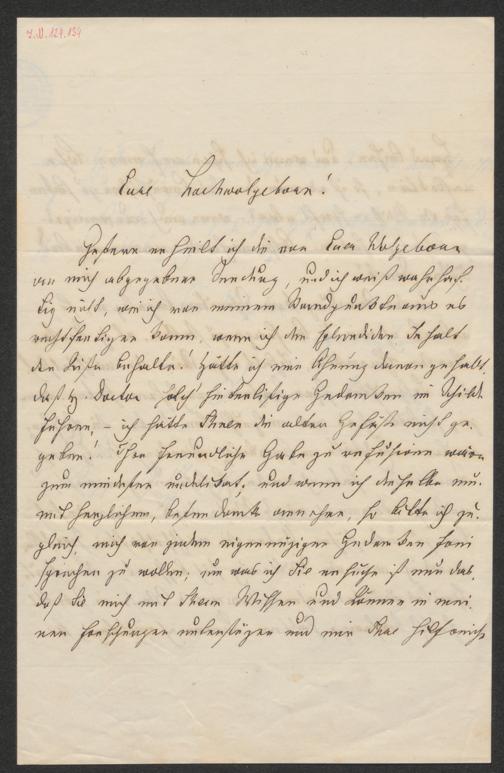 I.N. 129.134
Eure Hochwolgeboren!
Gestern erhielt ich die von Euer Wolgeboren
an mich abgegebene Sendung, und ich weiß wahrhaf-
tig nicht, wie ich von meinem Standpunkte aus es
rechtfertigen kann, wenn ich den splendiden Inhalt
der Kiste behalte! Hätte ich eine Ahnung davon gehabt,
daß H. Doctor solch hinterlistige Gedanken im Schilde
führen, – ich hätte Ihnen die alten Gefäße nicht ge-
geben! Ihre freundliche Gabe zu refusieren wäre
zum mindesten undelikat, und wenn ich dieselbe nun
mit herzlichem, besten Dank annehme, so bitte ich zu-
gleich, mich von jedem eigennützigen Gedanken frei
sprechen zu wollen; um was ich Sie ersuche ist nur das,
daß Sie mich mit Ihrem Wissen und Können in mei-
nen Forschungen unterstützen und mir Ihre hilfreiche